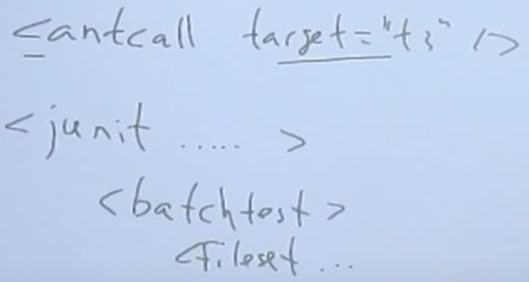 <antcall target="t3" />
<junit ..... >
<batchtest>
<fileset ...